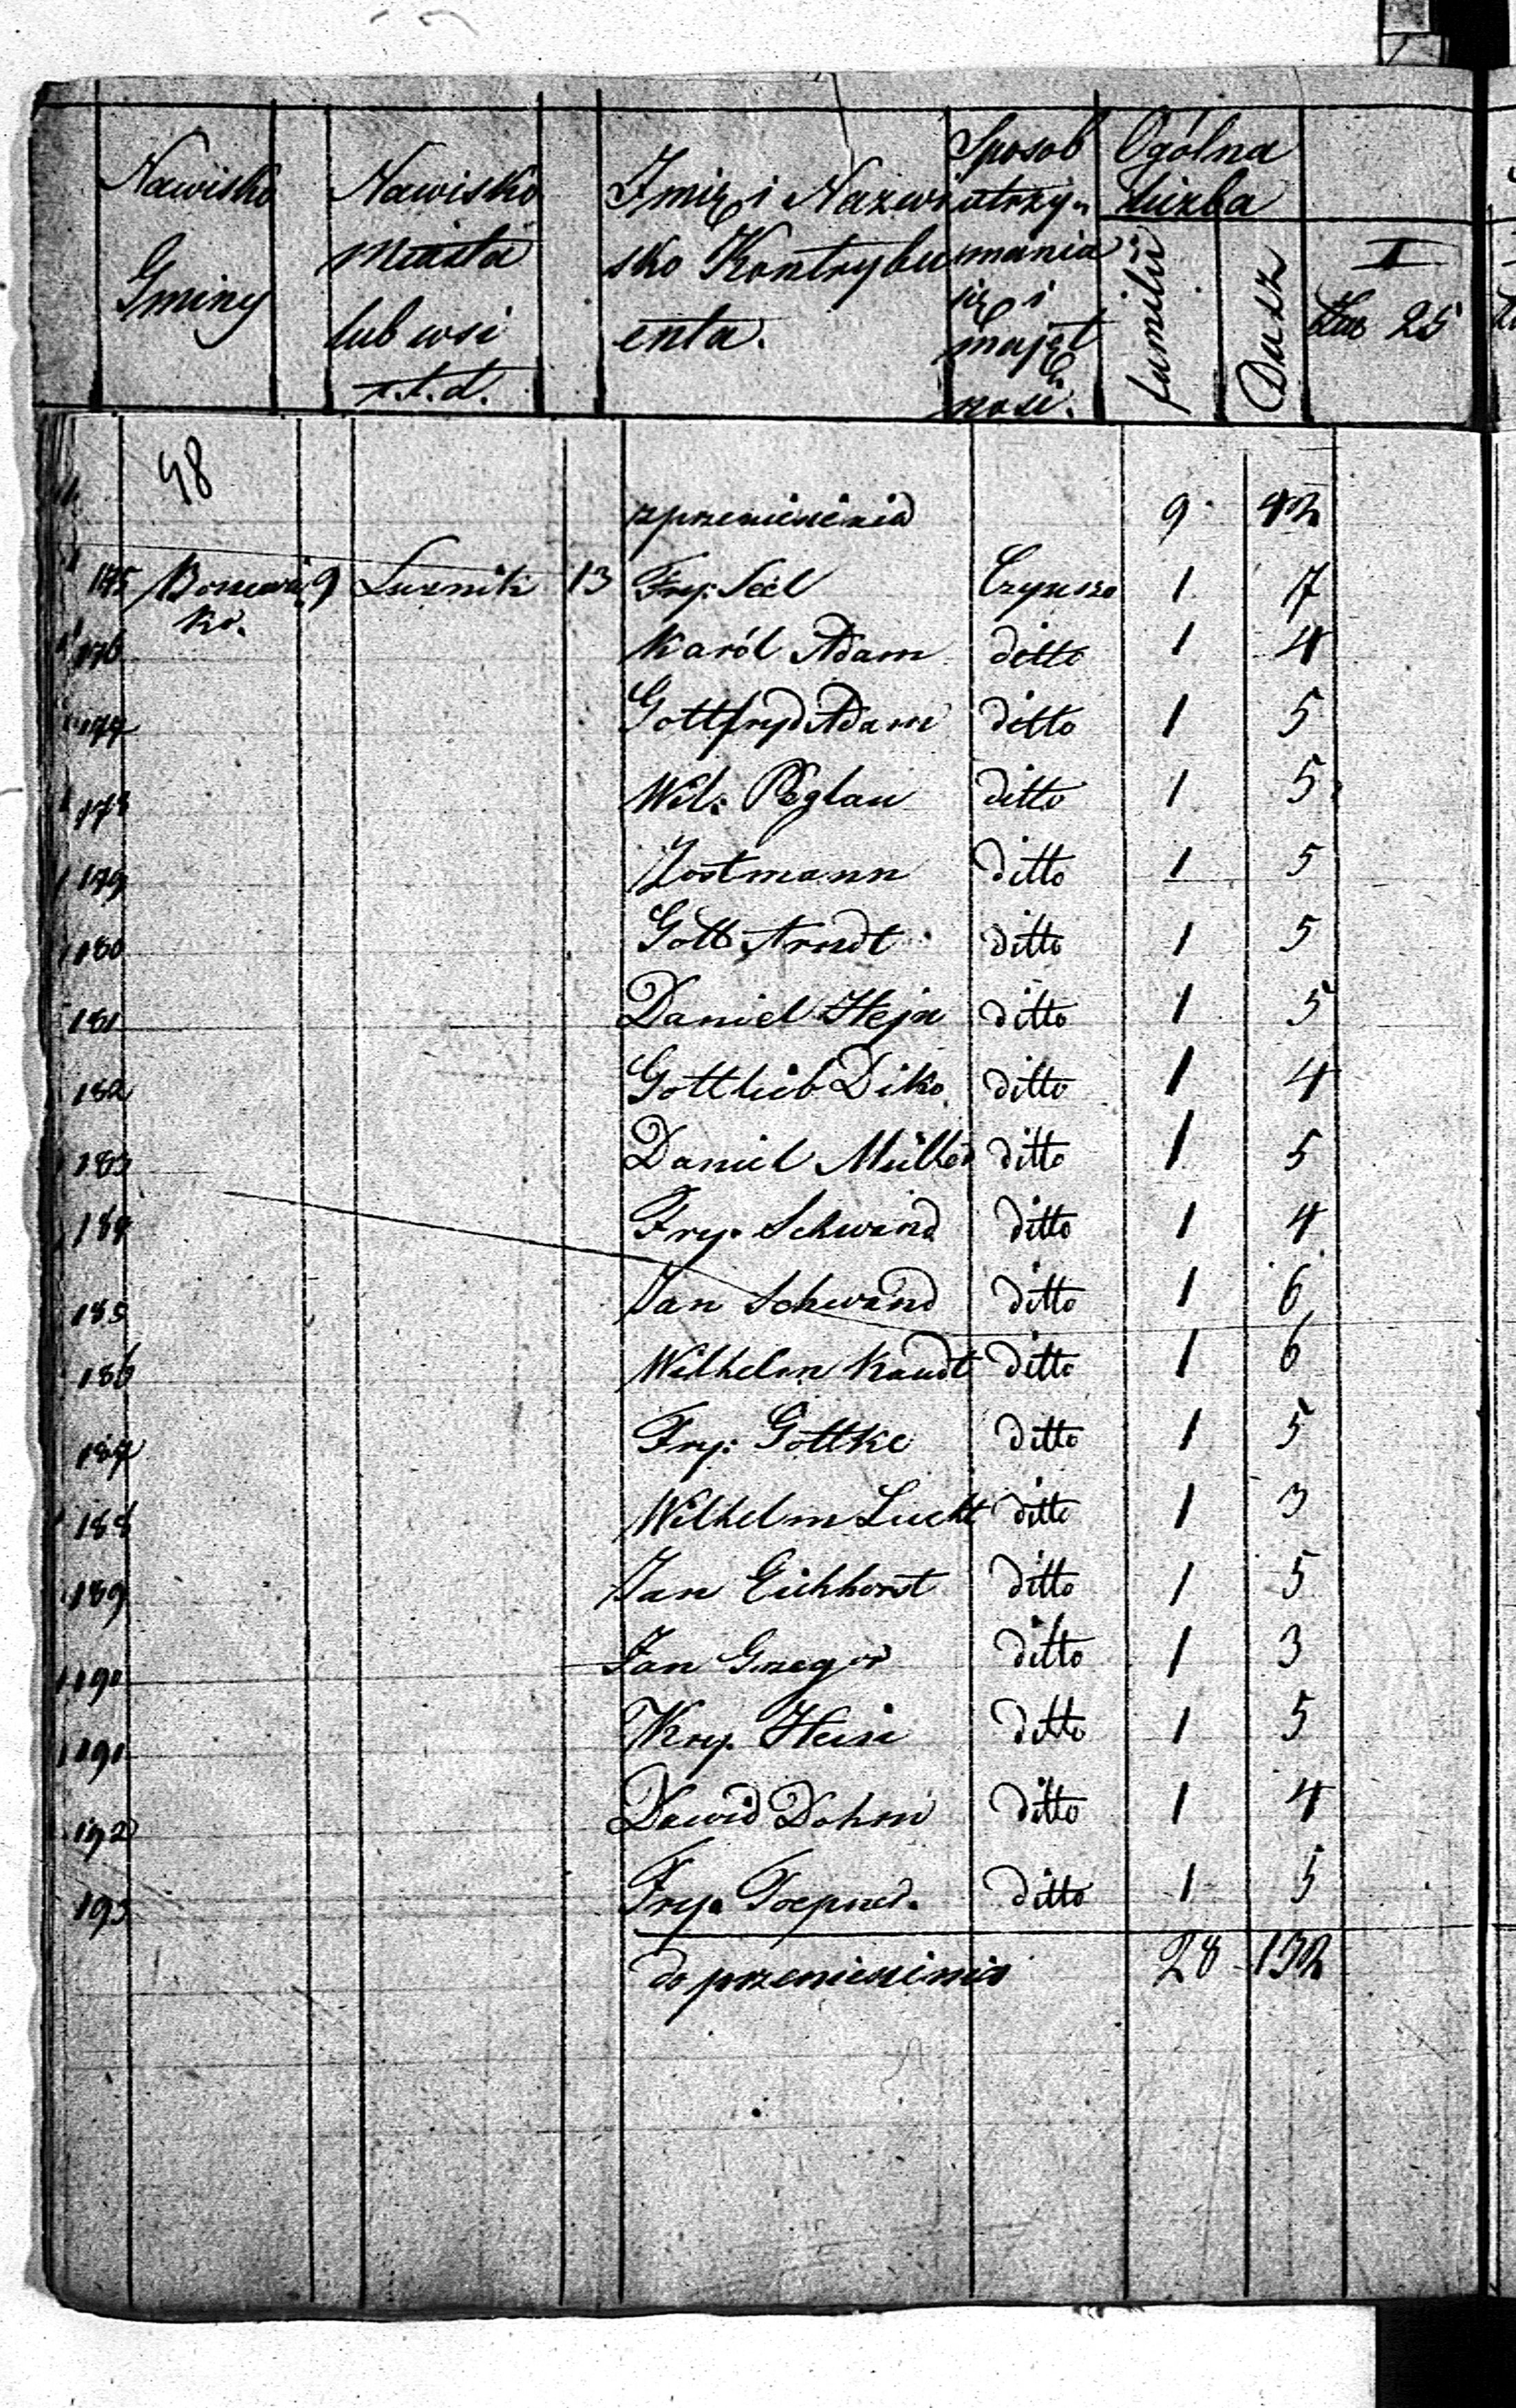 Nawisko Gminy
Nawisko Miasta lub wsi i.t.d.
Imię i Nazwisko Kontrybuenta.
Sposob utrzymania się i majętność.
Ogólna liczba
familii
Dusz
I
klas 25
48
z przeniesienia 9 42
175 9 Lusnik 13 Fry: Seel Czynszo 1 7
176 Karól Adam ditto 1 4
177 Gottfryd Adam ditto 1 5
178 Wil: Peglau ditto 1 5
179 Jostmann ditto 1 5
180 Gott. Arndt ditto 1 5
181 Daniel Hejn ditto 1 5
182 Gottlieb Diko ditto 1 4
183 Daniel Müller ditto 1 5
184 Fry. Schwand ditto 1 4
185 Jan Schwand ditto 1 6
186 Wilhelm Kandt ditto 1 6
187 Fry: Gottke ditto 1 5
188 Wilhelm Lucht ditto 1 3
189 Jan Eichhorst ditto 1 5
190 Jan Gregor ditto 1 3
191 Kry. Hein ditto 1 5
192 Dawid Dohm ditto 1 4
193 Fry. ditto 1 5
do przeniesienia 28 132